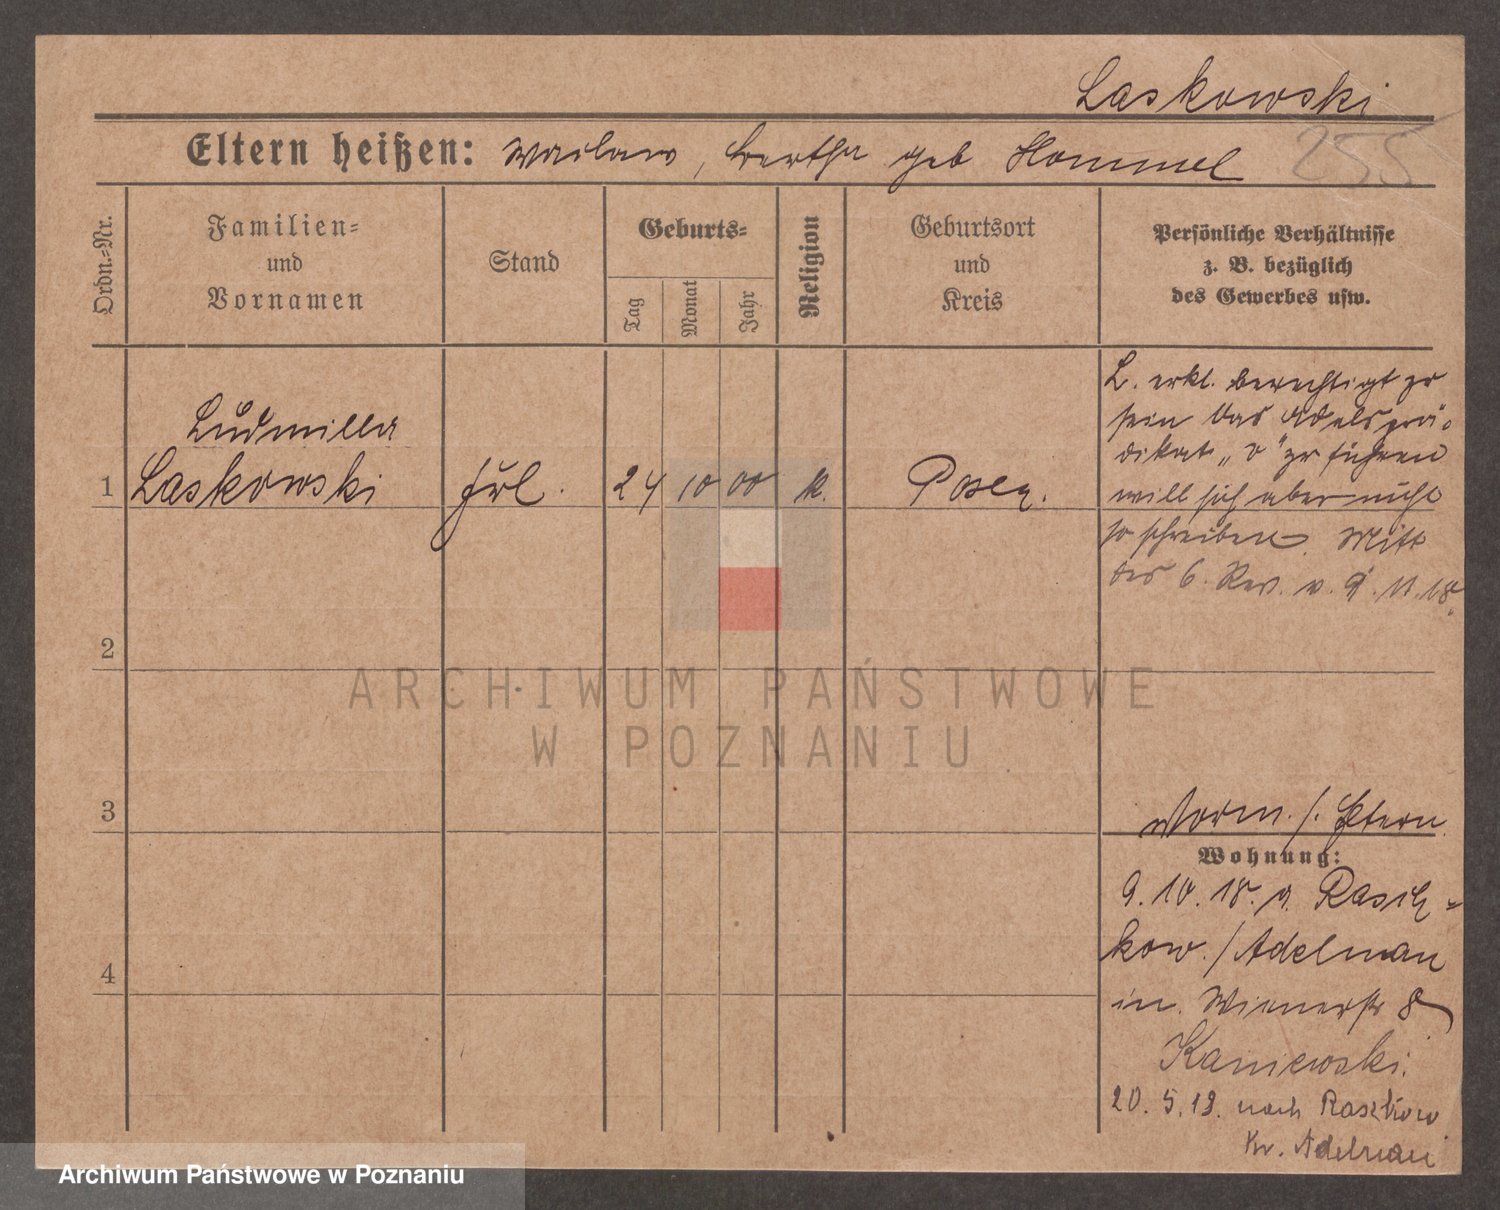 Laskowski
Eltern heißen: Waclaw, Bertha geb Hommel
255
Ordn.=Nr.
Familien=
und
Vornamen
Stand
Geburts=
Tag
Monat
Jahr
Religion
Geburtsort
und
Kreis
Persönliche Verhältnisse
z. B. bezüglich
des Gewerbes usw.
1
Ludmilla
Laskowski
Frl.
24
10
00
k.
Posen.
L. erkl. berechtigt zu
sein das Adelsprä-
dikat „v" zu führen
will sich aber nicht
so schreiben. Mitt
des 6. Rev. v. 9.11.18.
2
3
4
Vorm. /. Eltern.
Wohnung:
9.10.18. v. Rasch=
kow./Adelnau
in. Wienerstr 8
Kaniewski.
20.5.19. nach Raszkow
Kr. Adelnau
ARCHIWUM PAŃSTWOWE
W POZNANIU
Archiwum Państwowe w Poznaniu